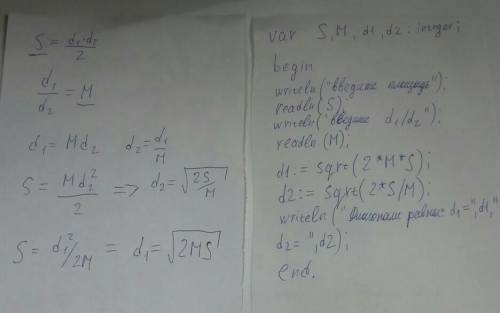 S = d₁·d₂/2
d₁/d₂ = M
d₁ = Md₂ d₂ = d₁/M
S = Md₂²/2 => d₂ = √(2S/M)
S = d₁²/2M = d₁ = √(2MS)
var S, M, d1, d2 : integer;
begin
writeln("введите площадь");
readln(S);
writeln("введите d₁/d₂");
readln(M);
d1 := sqrt(2*M*S);
d2 := sqrt(2*S/M);
writeln("Диагонали равны: d₁=",d1,"
d₂= ",d2);
end.